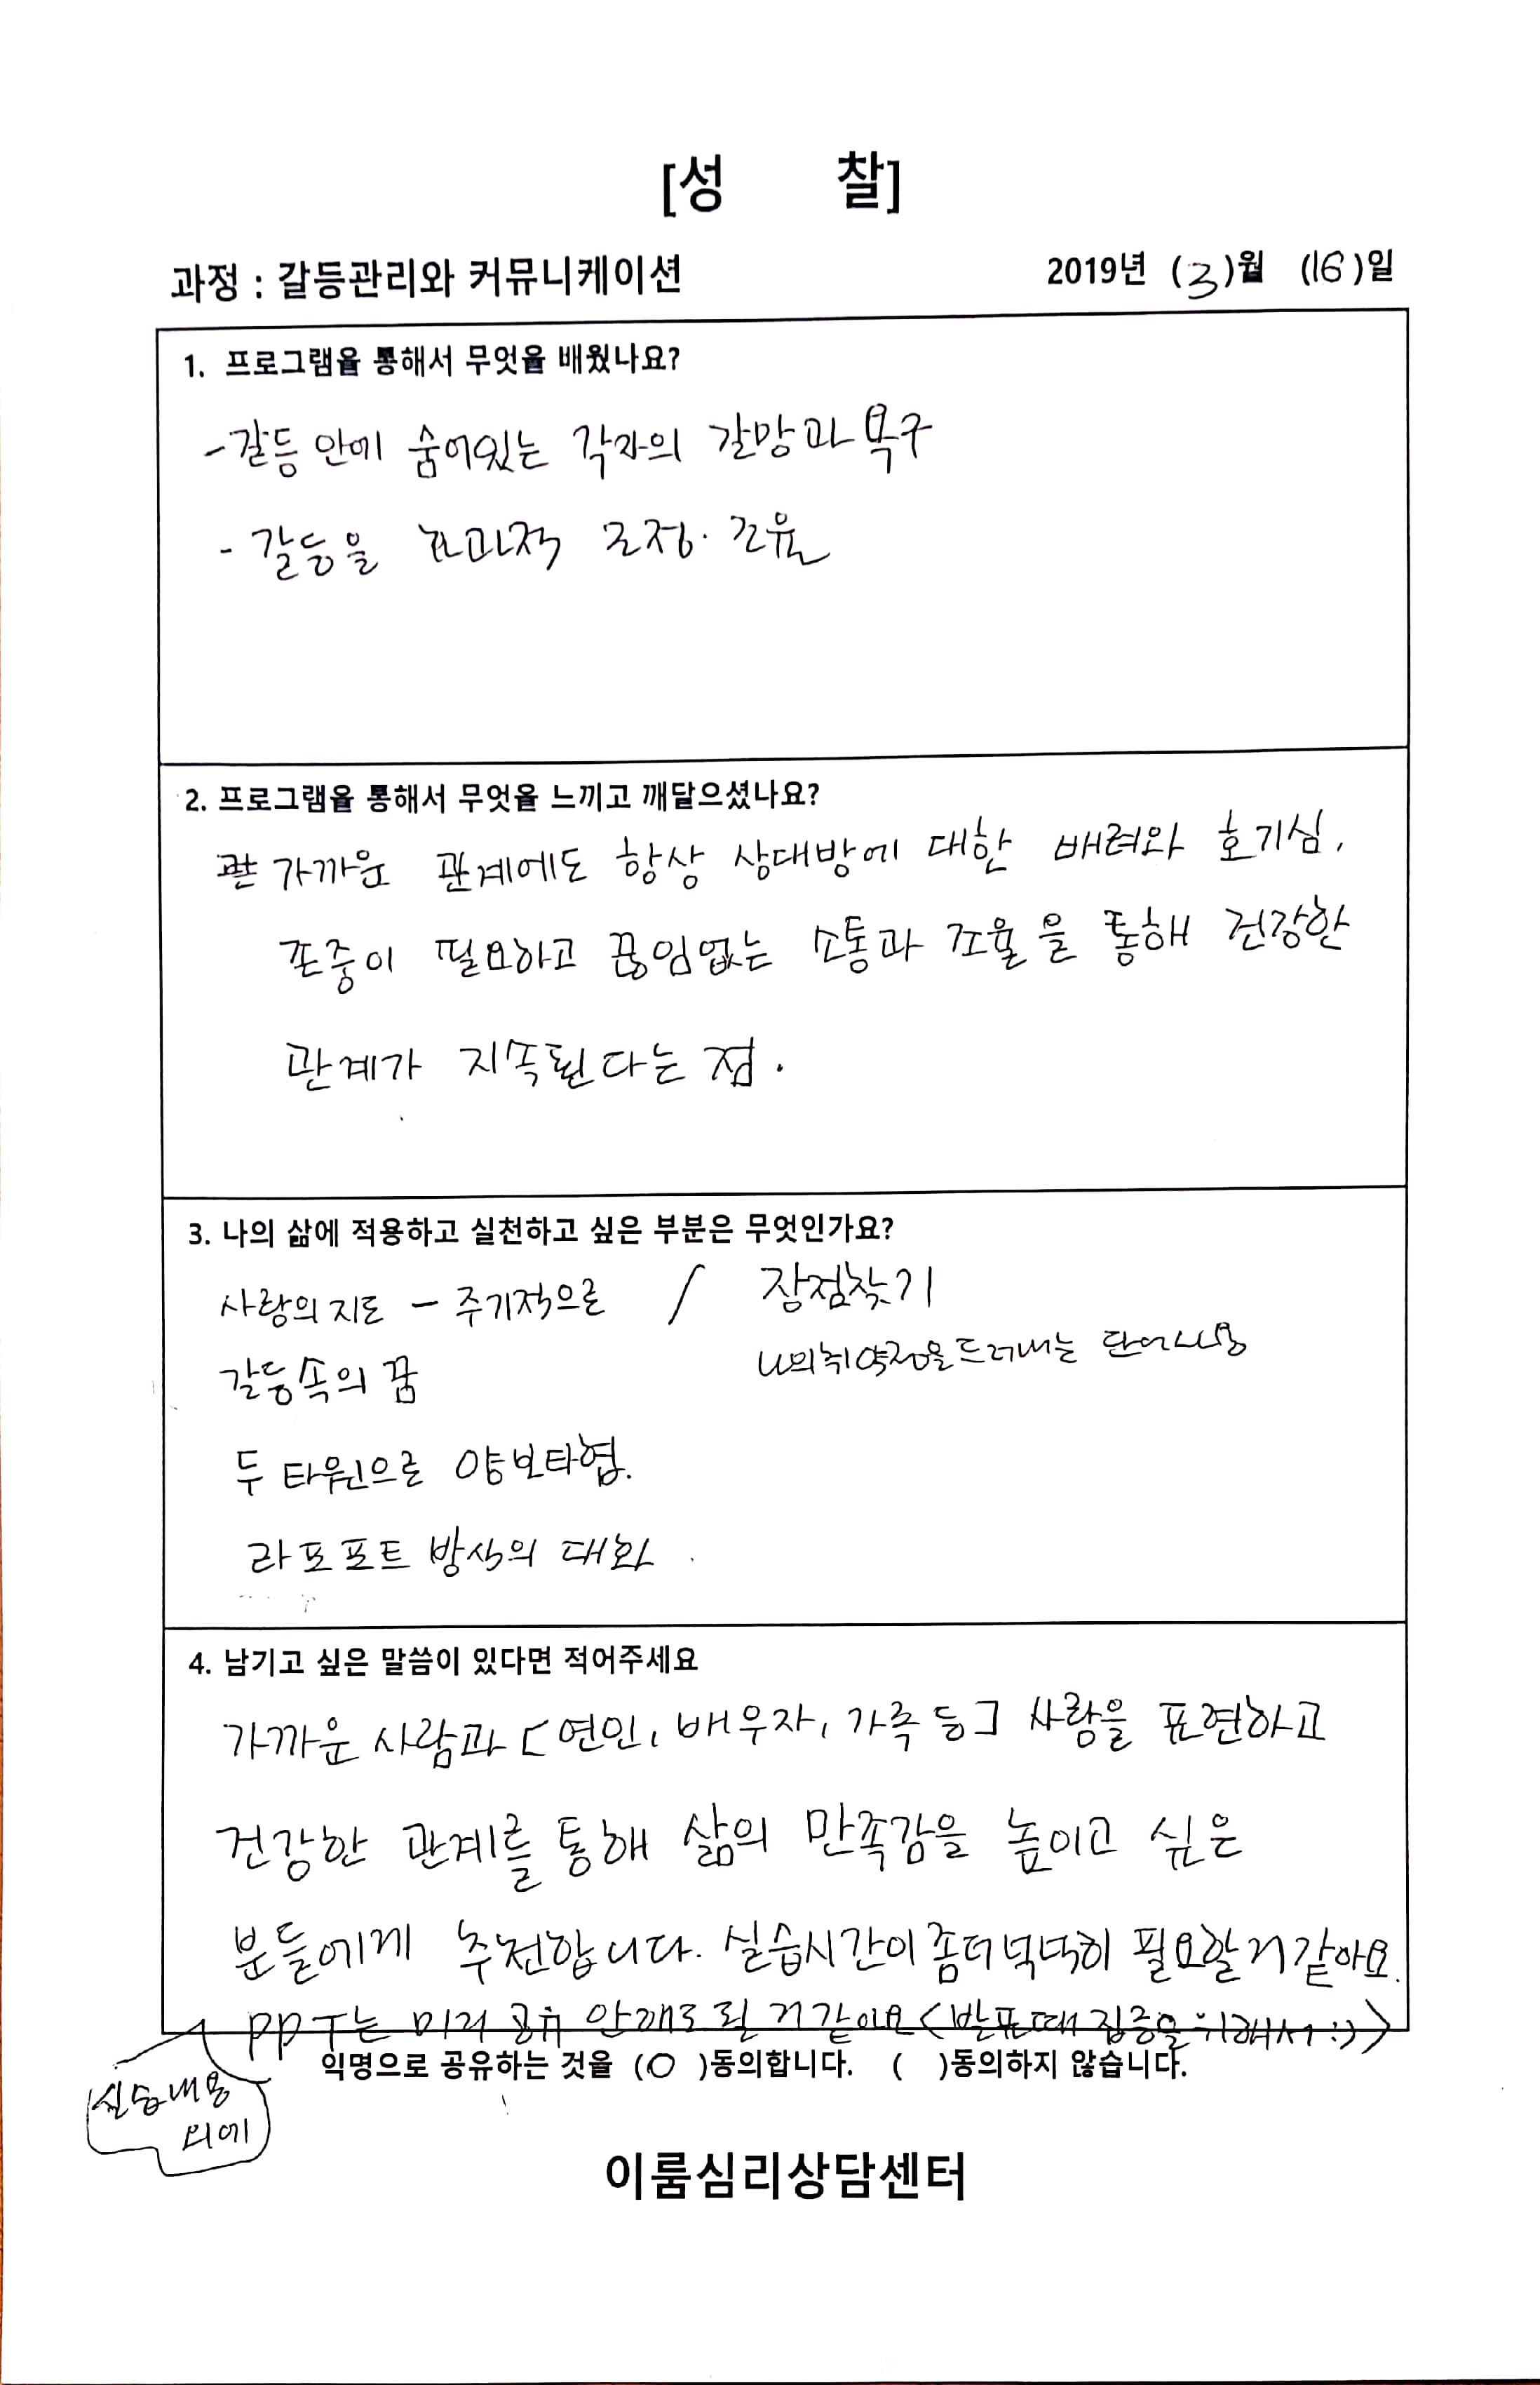 [성 찰]
과정 : 갈등관리와 커뮤니케이션 2019년 (3)월 (16)일
1. 프로그램을 통해서 무엇을 배웠나요?
-갈등 안에 숨어있는 각자의 갈망과 욕구
- 갈등을 효과적 조정·조율
2. 프로그램을 통해서 무엇을 느끼고 깨달으셨나요?
가까운 관계에도 항상 상대방에 대한 배려와 호기심,
존중이 필요하고 끊임없는 소통과 조율을 통해 건강한
관계가 지속된다는 점.
3. 나의 삶에 적용하고 실천하고 싶은 부분은 무엇인가요?
사랑의 지도 - 주기적으로 / 장점찾기
갈등속의 꿈 나의취약점을드러내는 단어사용
두 타원으로 양보타협.
라포포트 방식의 대화
4. 남기고 싶은 말씀이 있다면 적어주세요
가까운 사람과 [연인, 배우자, 가족 등] 사랑을 표현하고
건강한 관계를 통해 삶의 만족감을 높이고 싶은
분들에게 추천합니다. 실습시간이 좀더 넉넉히 필요할거같아요.
PPT는 미리 공유 안해도 될 거같아요 <발표때 집중을 위해서 :)>
실습내용
외에
익명으로 공유하는 것을 (O )동의합니다. ( )동의하지 않습니다.
이룸심리상담센터